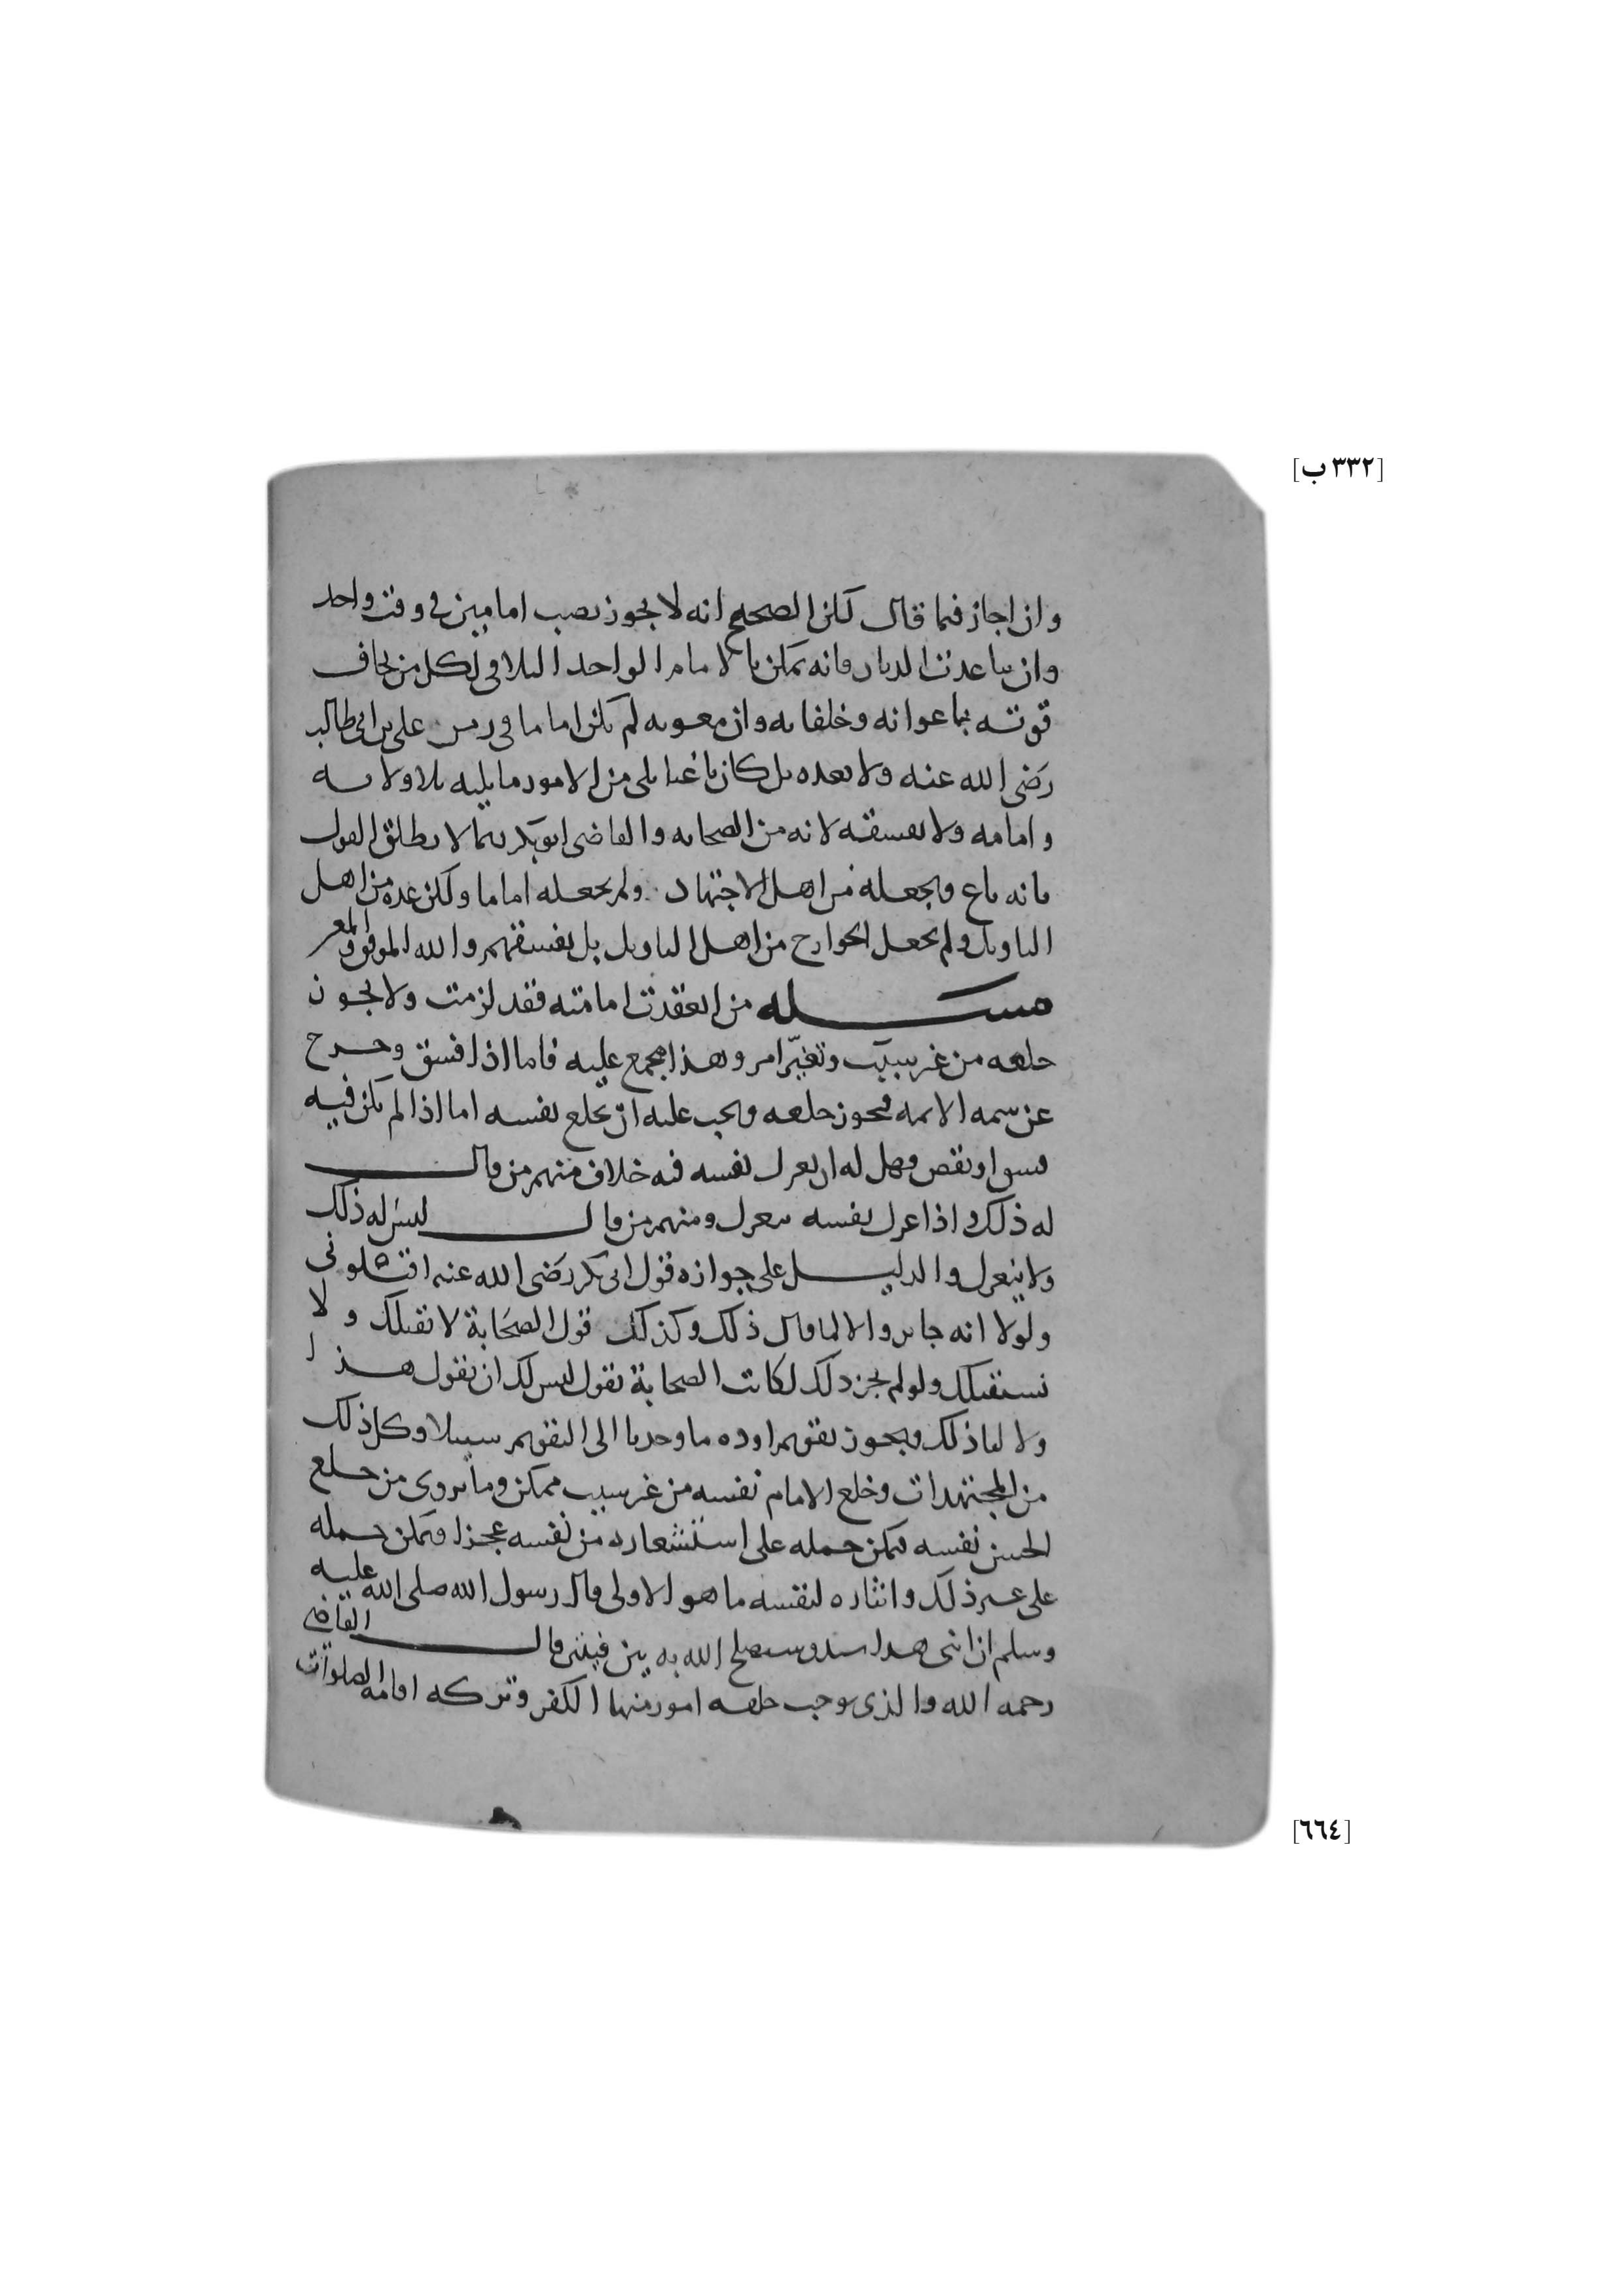 [٣٣٢ ب]
وان اجاز فيما قال لكن الصحيح انه لا يجوز نصب امامين في وقت واحد
وان تباعدت الديار فانه يمكن بالامام الواحد التلافي لكل من يخاف
فوته باعوانه وخلفايه وان معويه لم يكن اماما في زمن علي بن ابي طالب
رضى الله عنه ولا بعده بل كان باغيا يلى من الامور ما يليه بلا ولايه
وامامه ولا نفسقه لانه من الصحابه والقاضي ابو بكر ربما لا يطلق القول
بانه باغ ويجعله من اهل الاجتهاد ولم يجعله اماما ولكن عده من اهل
التاويل ولم يجعل الخوارج من اهل التاويل بل يفسقهم والله الموفق
مسله من انعقدت امامته فقد لزمت ولا يجوز
خلعه من غير سبب وتغيّر امر وهذا مجمع عليه فاما اذا فسق وخرج
عن سمه الايمه فيجوز خلعه ويجب عليه ان يخلع نفسه اما اذا لم يكن فيه
فسق او نقص فهل له ان يعزل نفسه فيه خلاف منهم من قال
له ذلك واذا عزل نفسه ينعزل ومنهم من قال ليس له ذلك
ولا ينعزل والدليل على جوازه قول ابى بكر رضى الله عنه اقيلونى
ولولا انه جايز والا لما قال ذلك وكذلك قول الصحابة لا نقيلك ولا
نستقيلك ولو لم يجز ذلك لكانت الصحابة تقول ليس لك ان تقول هذا
ولا لنا ذلك ويجوز تقويم اوده ما وجدنا الى التقويم سبيلا وكل ذلك
من المجتهدات وخلع الامام نفسه من غير سبب ممكن وما يروى من خلع
الحسن نفسه فيمكن حمله على استشعاره من نفسه عجزا ويمكن حمله
على غير ذلك وايثاره لنفسه ما هو الاولى قال رسول الله صلى الله عليه
وسلم ان ابنى هذا سيد وسيصلح الله به بين فيتين قال القاضى
رحمه الله والذى يوجب خلعه امور منها الكفر وتركه اقامه الصلوات
[٦٦٤]